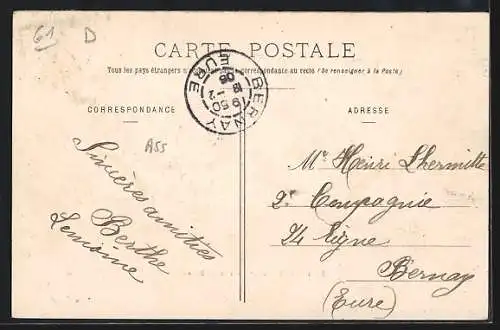 61 D
CARTE POSTALE
Tous les pays étrangers n'acceptent pas la correspondance au recto (Se renseigner à la Poste)
CORRESPONDANCE
ADRESSE
BERNAY
EURE
A55
Sincères amitiés
Berthe
Lemoine
Mr Henri Lhermitte
2e Compagnie
74 ligne
Bernay
(Eure)